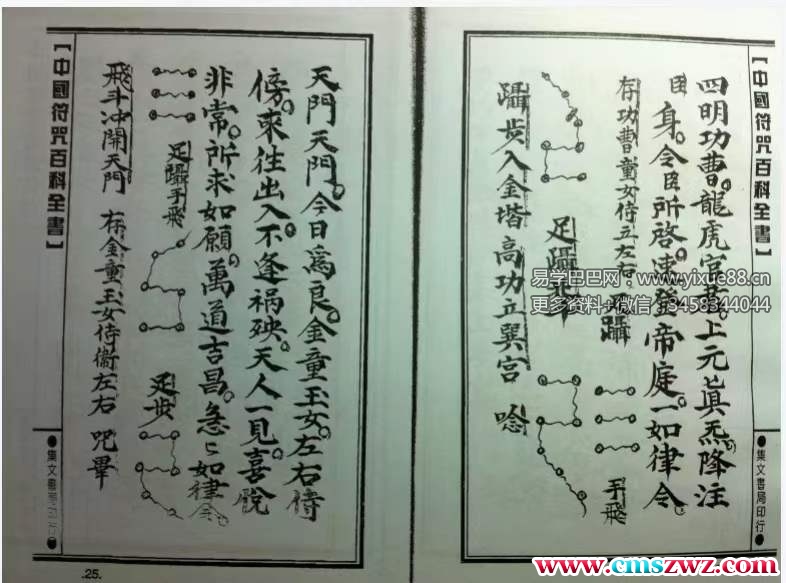 【中國符咒百科全書】
●集文書局印行●
四明功曹。龍虎官。上元真炁降注
臣身。令臣所啓速登帝庭。一如律令。
存功曹童女侍立左右
躡
手飛
足躡
躡步入金堦 高功立巽宮 唸
天門天門。今日為良。金童玉女。左右侍
傍。來往出入。不逢禍殃。天人一見。喜悅
非常。所求如願。萬道吉昌。急〻如律令。
足躡手飛
足步
飛斗冲開天門 存金童玉女侍衛左右 咒畢
【中國符咒百科全書】
●集文書局印行●
.25.
易学巴巴网 www.yixue88.cn
更多资料+微信 13458344044
www.cmszwz.com